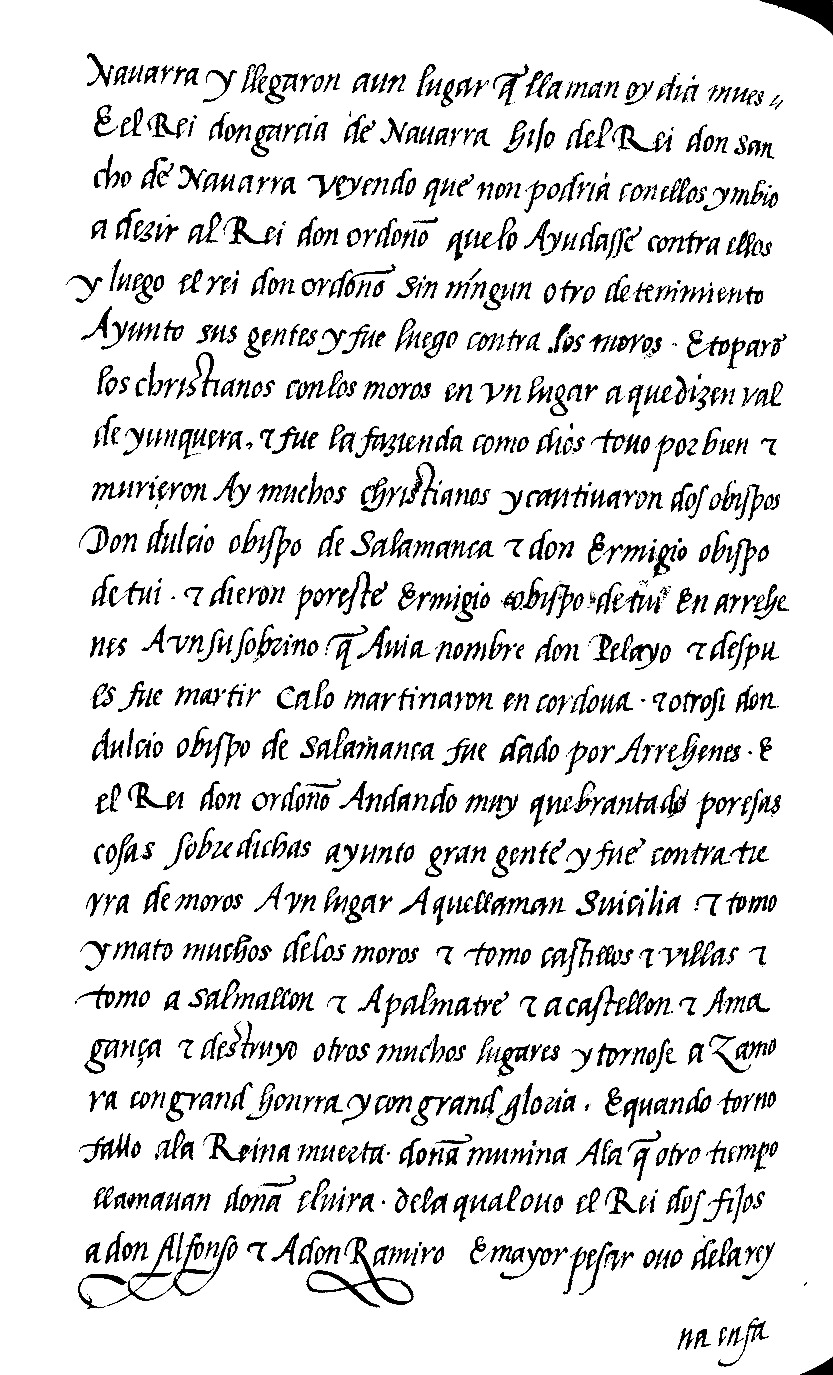 Nauarra y llegaron aun lugar q̃ llaman oy dia mues
E el Rei don garcia de Nauarra hijo del Rei don san
cho de Nauarra veyendo que non podria con ellos ymbio
a dezir al Rei don ordoño que lo Ayudasse contra ellos
y luego el rei don ordoño sin ningun otro detenimiento
Ayunto sus gentes y fue luego contra los moros . E toparõ
los christianos con los moros en vn lugar a que dizen val
de yunquera, τ fue la fazienda como dios touo por bien τ
murieron Ay muchos christianos y cautiuaron dos obispos
Don dulcio obispo de Salamanca τ don Ermigio obispo
de tui . τ dieron por este Ermigio obispo de tui En arrehe
nes A vn su sobrino q̃ Auia nombre don Pelayo τ despu
es fue martir Ca lo martiriaron en cordoua . τ otrosi don
dulcio obispo de Salamanca fue dado por Arrehenes . E
el Rei don ordoño Andando muy quebrantado por esas
cosas sobre dichas ayunto gran gente y fue contra tie
rra de moros A vn lugar A que llaman Suicilia . τ tomo
y mato muchos de los moros τ tomo castillos τ villas τ
tomo a Salmallon τ A palmatre τ a castellon τ A ma
gança τ destruyo otros muchos lugares y tornose a Zamo
ra con grand honrra y con grand gloria . E quando torno
fallo a la Reina muerta . doña munina A la q̃ otro tiempo
llamauan doña eluira . de la qual ouo el Rei dos fijos
a don Alfonso τ A don Ramiro E mayor pesar ouo de la rey
na en su